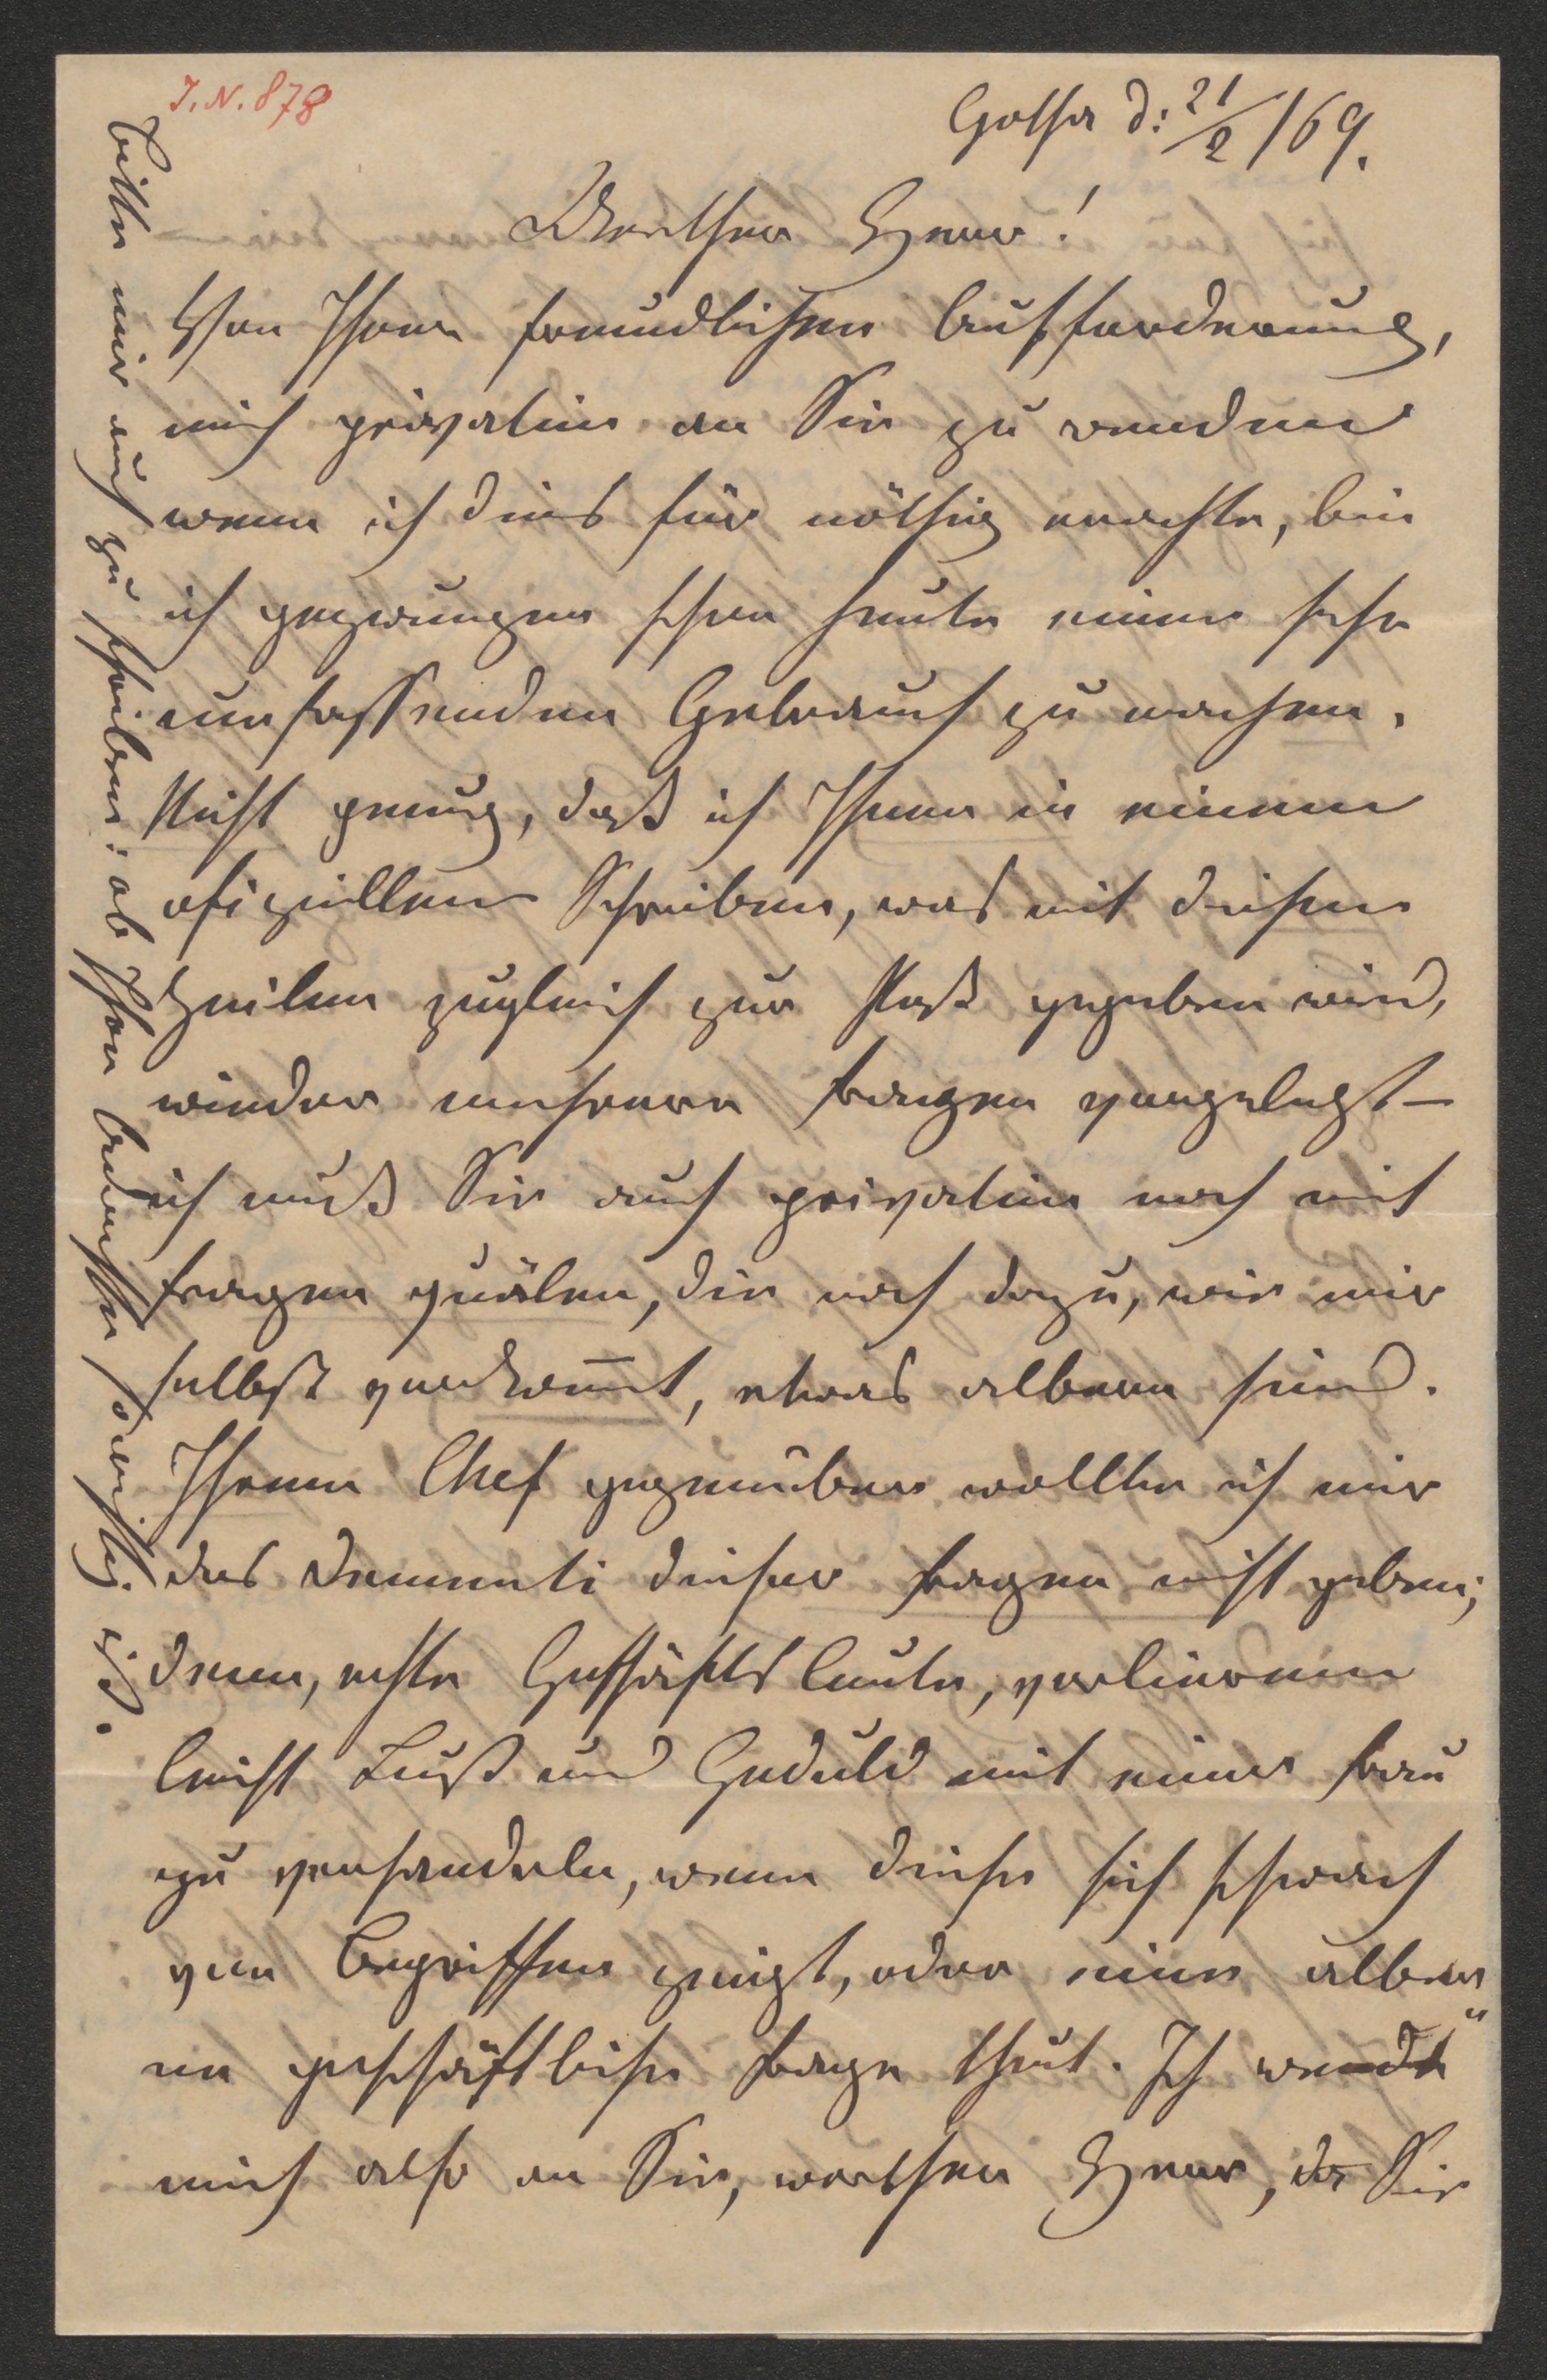 J. N. 878
Gotha d: 21/2 /69.
Werther Herr!
Von Ihrer freundlichen Aufforderung,
mich privatim an Sie zu wenden
wenn ich dies für nöthig erachte, bin
ich gezwungen schon heute einen sehr
umfassenden Gebrauch zu machen.
Nicht genug, daß ich Ihnen in einem
ofiziellen Schreiben, was mit diesen
Zeilen zugleich zur Post gegeben wird,
wieder mehrere Fragen vorgelegt –
ich muß Sie auch privatim noch mit
Fragen quälen, die noch dazu, wie mir
selbst vorkom̄t, etwas albern sind.
Ihrem Chef gegenüber wollte ich mir
das Dementi dieser Fragen nicht geben;
denn, echte Geschäftsleute, verlieren
leicht Lust und Geduld mit einer Frau
zu verhandeln, wenn diese sich schwach
von Begriffen zeigt, oder eine alber
ne geschäftliche Frage thut. Ich wende
mich also an Sie, werther Herr, da Sie
Bitte mir auch zu schreiben: ob Ihre Adresse so richtig ist.